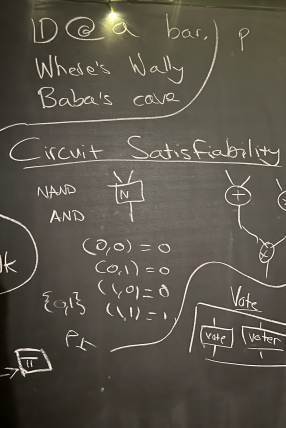 D @ a bar.
P
Where's Wally
Baba's cave
Circuit Satisfiability
NAND
N
AND
+
(0,0) = 0
(0,1) = 0
(1,0) = 0
{0,1}
(1,1) = 1
Vote
vote
voter